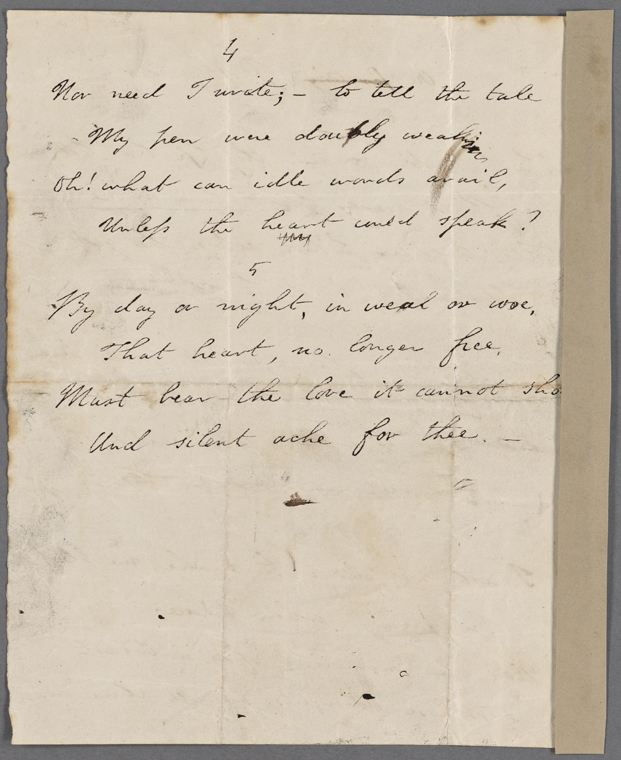 4
Nor need I write; – to tell the tale
My pen were doubly weak
Oh! what can idle words avail,
Unless the heart could speak?
5
By day or night, in weal or woe,
That heart, no longer free,
Must bear the love it cannot sho
And silent ache for thee. –